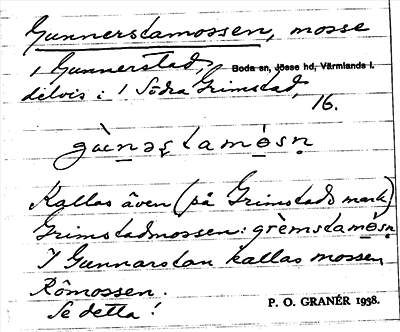 Gunnerstamossen, mosse
i Gunnerstad, Boda sn, Jösse hd, Värmlands l.
delvis i 1 Södra Grimstad,
16.
gùnəʂtamòsn̥
Kallas även (på Grimstads mark)
Grimstadmossen: grèmstamòsn̥
I Gunnarstan kallas mossen
Römossen.
Se detta!
P. O. GRANÉR 1938.